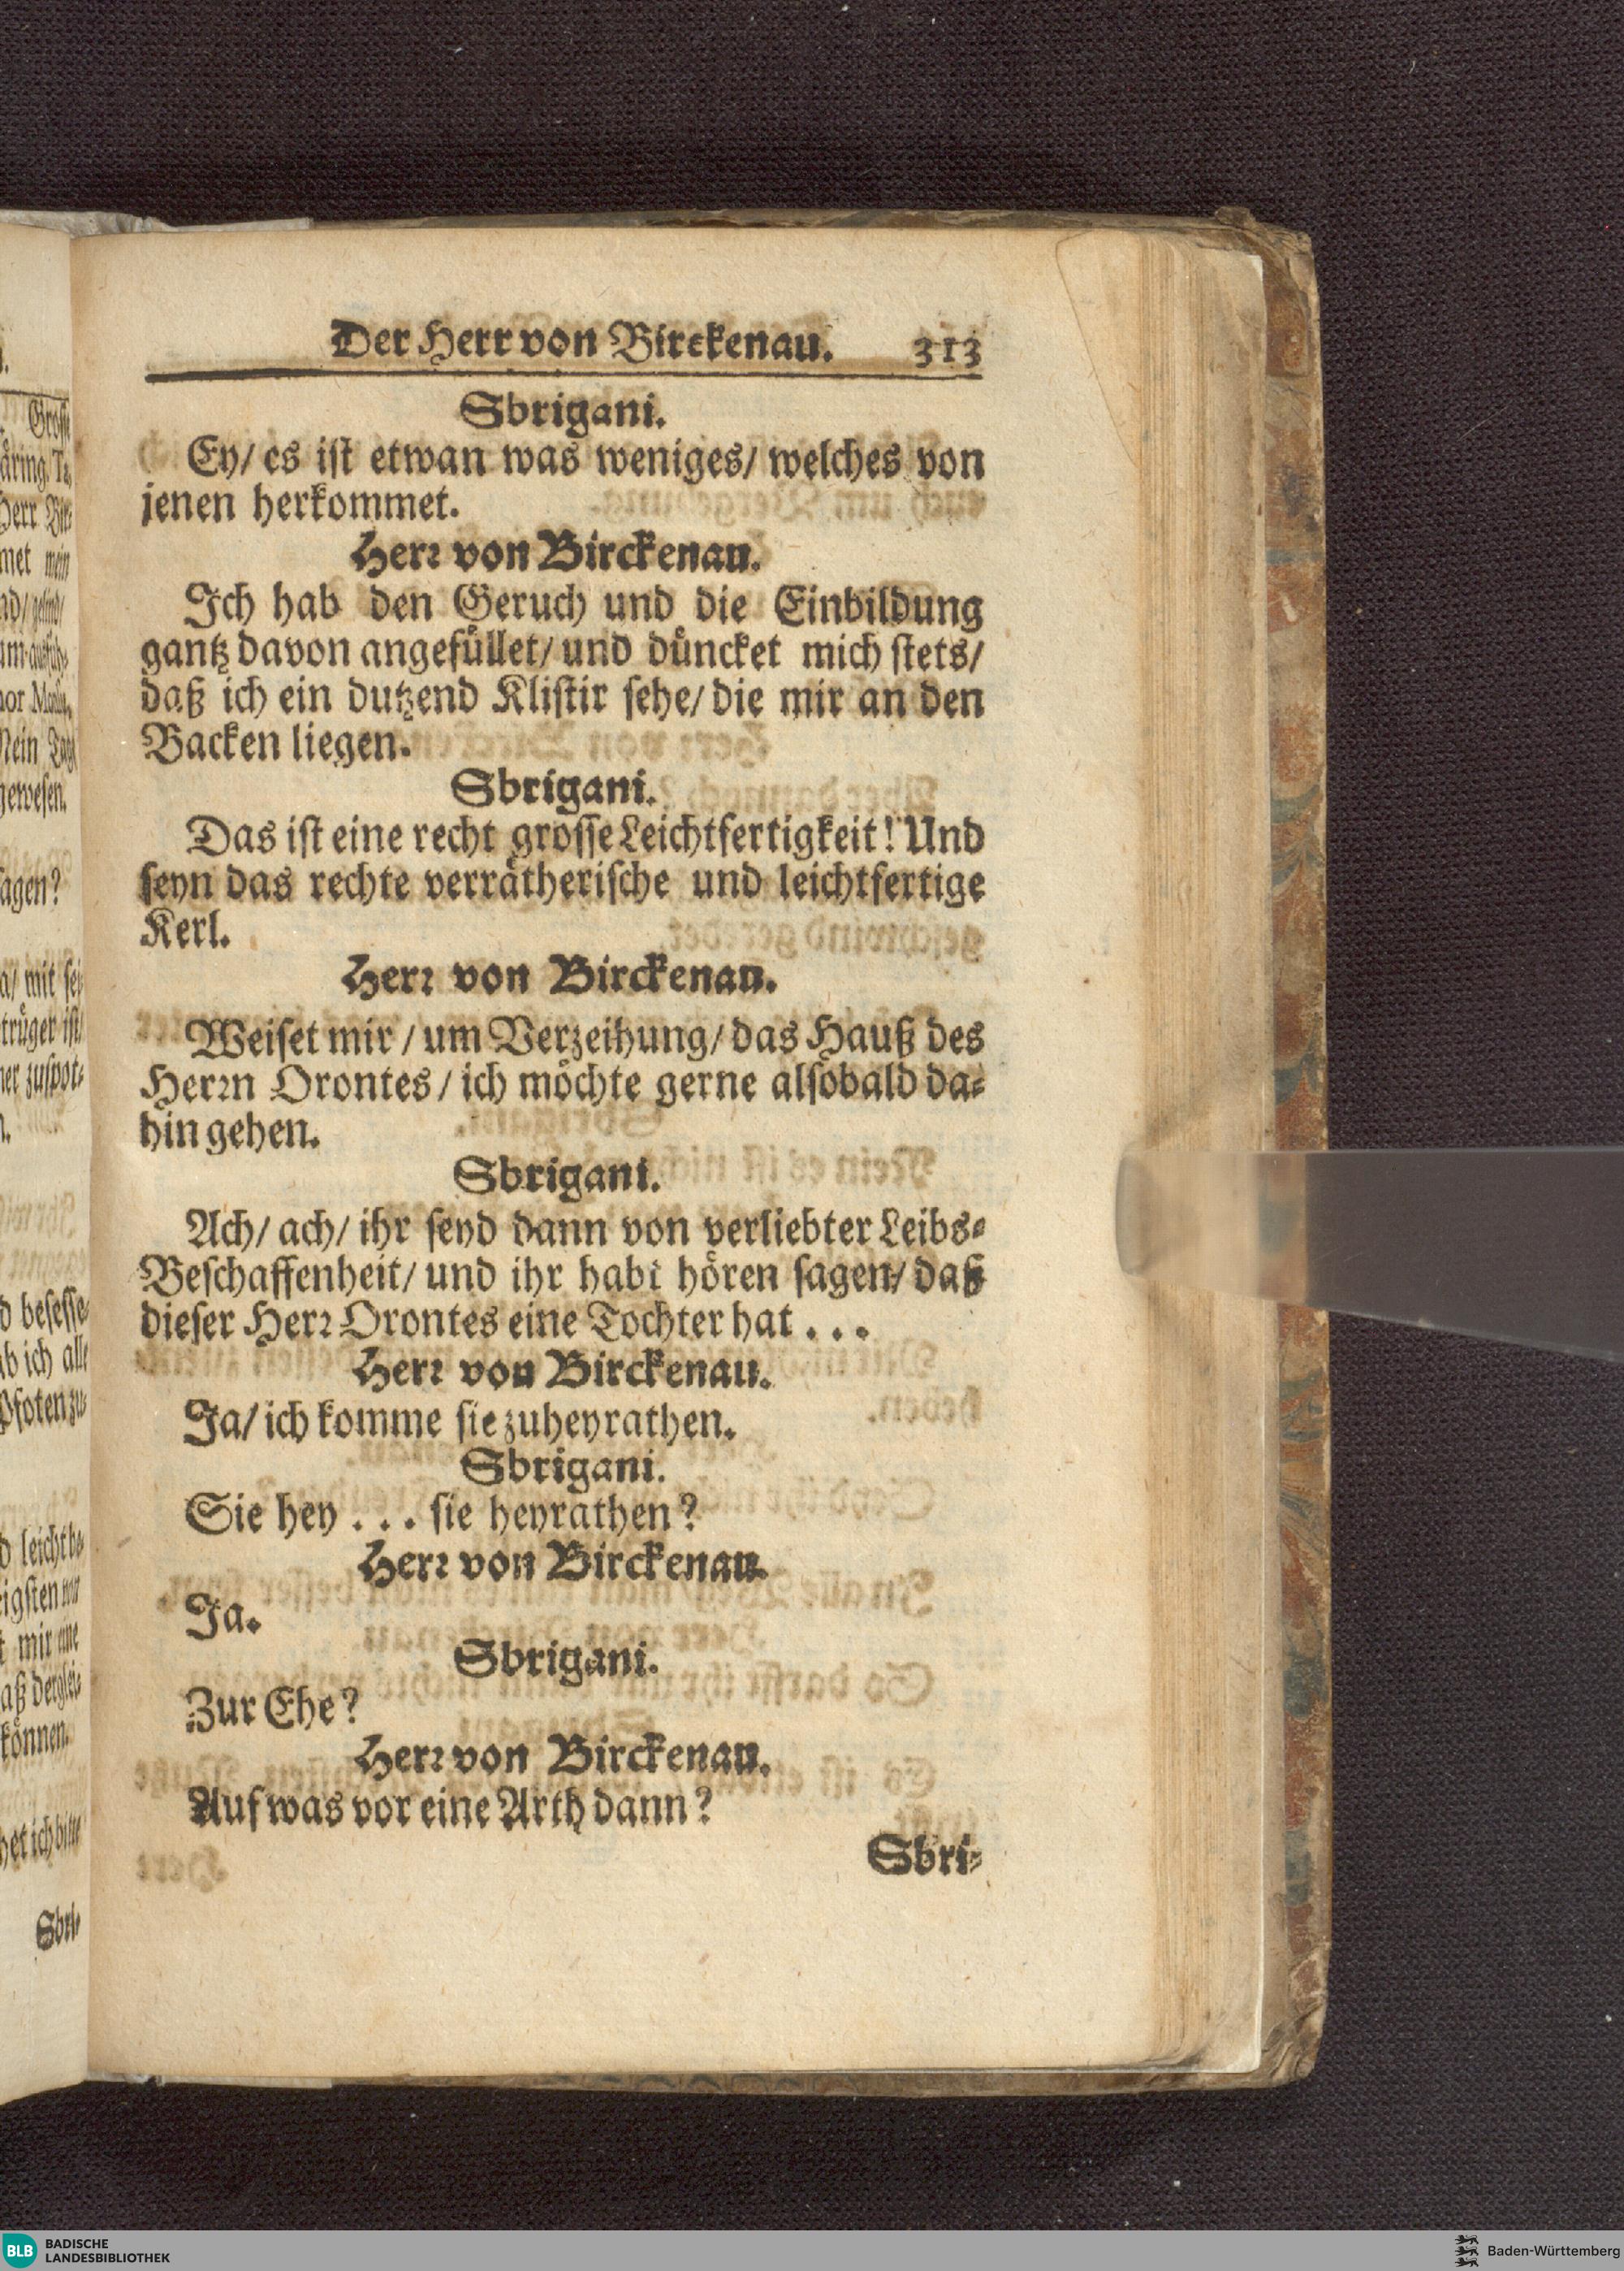 Der Herr von Birckenau. 313
Sbrigani.
Ey/ es ist etwan was weniges/ welches von
jenen herkommet.
Herr von Birckenau.
Ich hab den Geruch und die Einbildung
gantz davon angefüllet/ und düncket mich stets/
daß ich ein dutzend Klistir sehe/ die mir an den
Backen liegen.
Sbrigani.
Das ist eine recht grosse Leichtfertigkeit! Und
seyn das rechte verrätherische und leichtfertige
Kerl.
Herr von Birckenau.
Weiset mir / um Verzeihung/ das Hauß des
Herrn Orontes / ich möchte gerne alsobald da-
hin gehen.
Sbrigani.
Ach/ ach/ ihr seyd dann von verliebter Leibs-
Beschaffenheit/ und ihr habt hören sagen/ daß
dieser Herr Orontes eine Tochter hat . . .
Herr von Birckenau.
Ja/ ich komme sie zuheyrathen.
Sbrigani.
Sie hey . . . sie heyrathen?
Herr von Birckenau.
Ja.
Sbrigani.
Zur Ehe?
Herr von Birckenau.
Auf was vor eine Arth dann?
Sbri-
BLB BADISCHE
LANDESBIBLIOTHEK
Baden-Württemberg